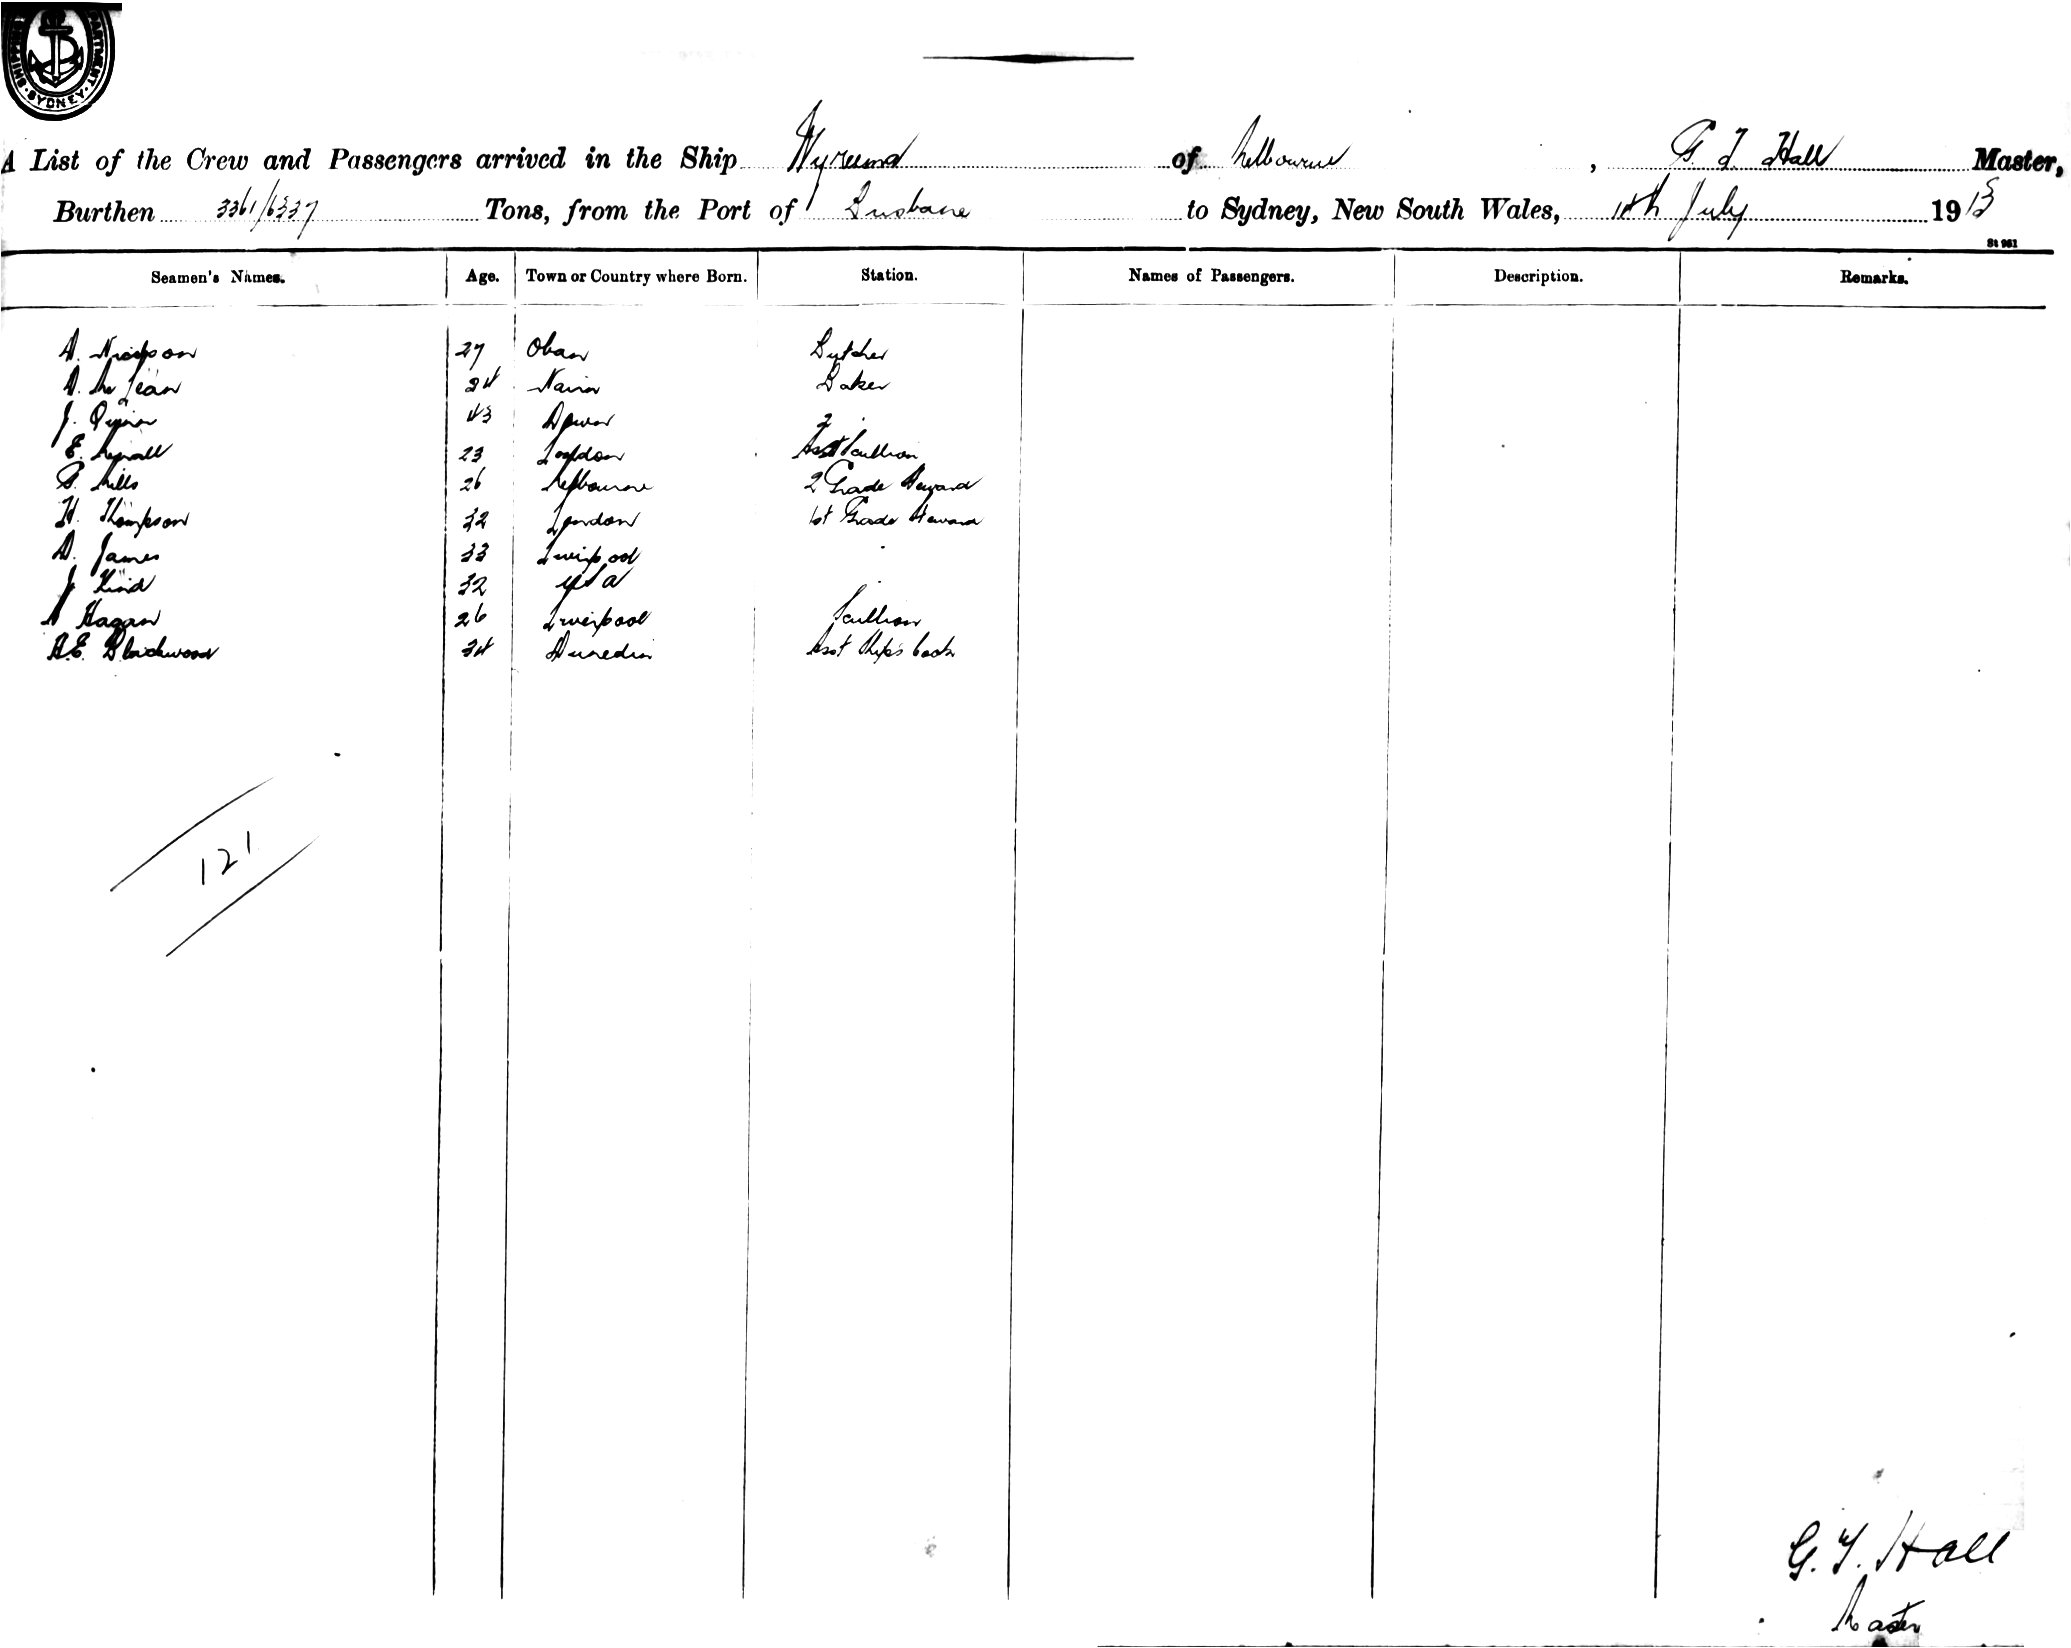 SHIPPING DEPARTMENT SYDNEY
A List of the Crew and Passengers arrived in the Ship Wyreema of Melbourne, G. T. Hall Master,
Burthen 3361/6337 Tons, from the Port of Brisbane to Sydney, New South Wales, July 1913
St 961
Seamen's Names. Age. Town or Country where Born. Station. Names of Passengers. Description. Remarks.
27 Oban Butcher
D. McLean 24 Nairn Baker
J. Quinn 43 Down 2
E. 23 London Asst Scullion
G. Mills 26 Melbourne 2 Grade Steward
H. Thompson 32 London 1st Grade Steward
D. James 33 Liverpool
J. Kind 32
Hagan 26 Liverpool Scullion
A.E. Blackwood 34 Dunedin Asst Ship's Cook
121
G. T. Hall
Master